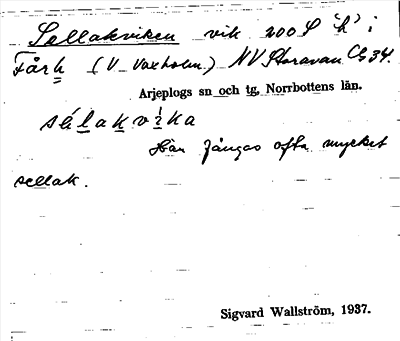 Sellakviken vik 200 S "h" i
Fårh (V Vaxholm.) NV Storavan Cb 34.
Arjeplogs sn och tg, Norrbottens län.
sélakvìka
Här fångas ofta mycket
sellak.
Sigvard Wallström, 1937.